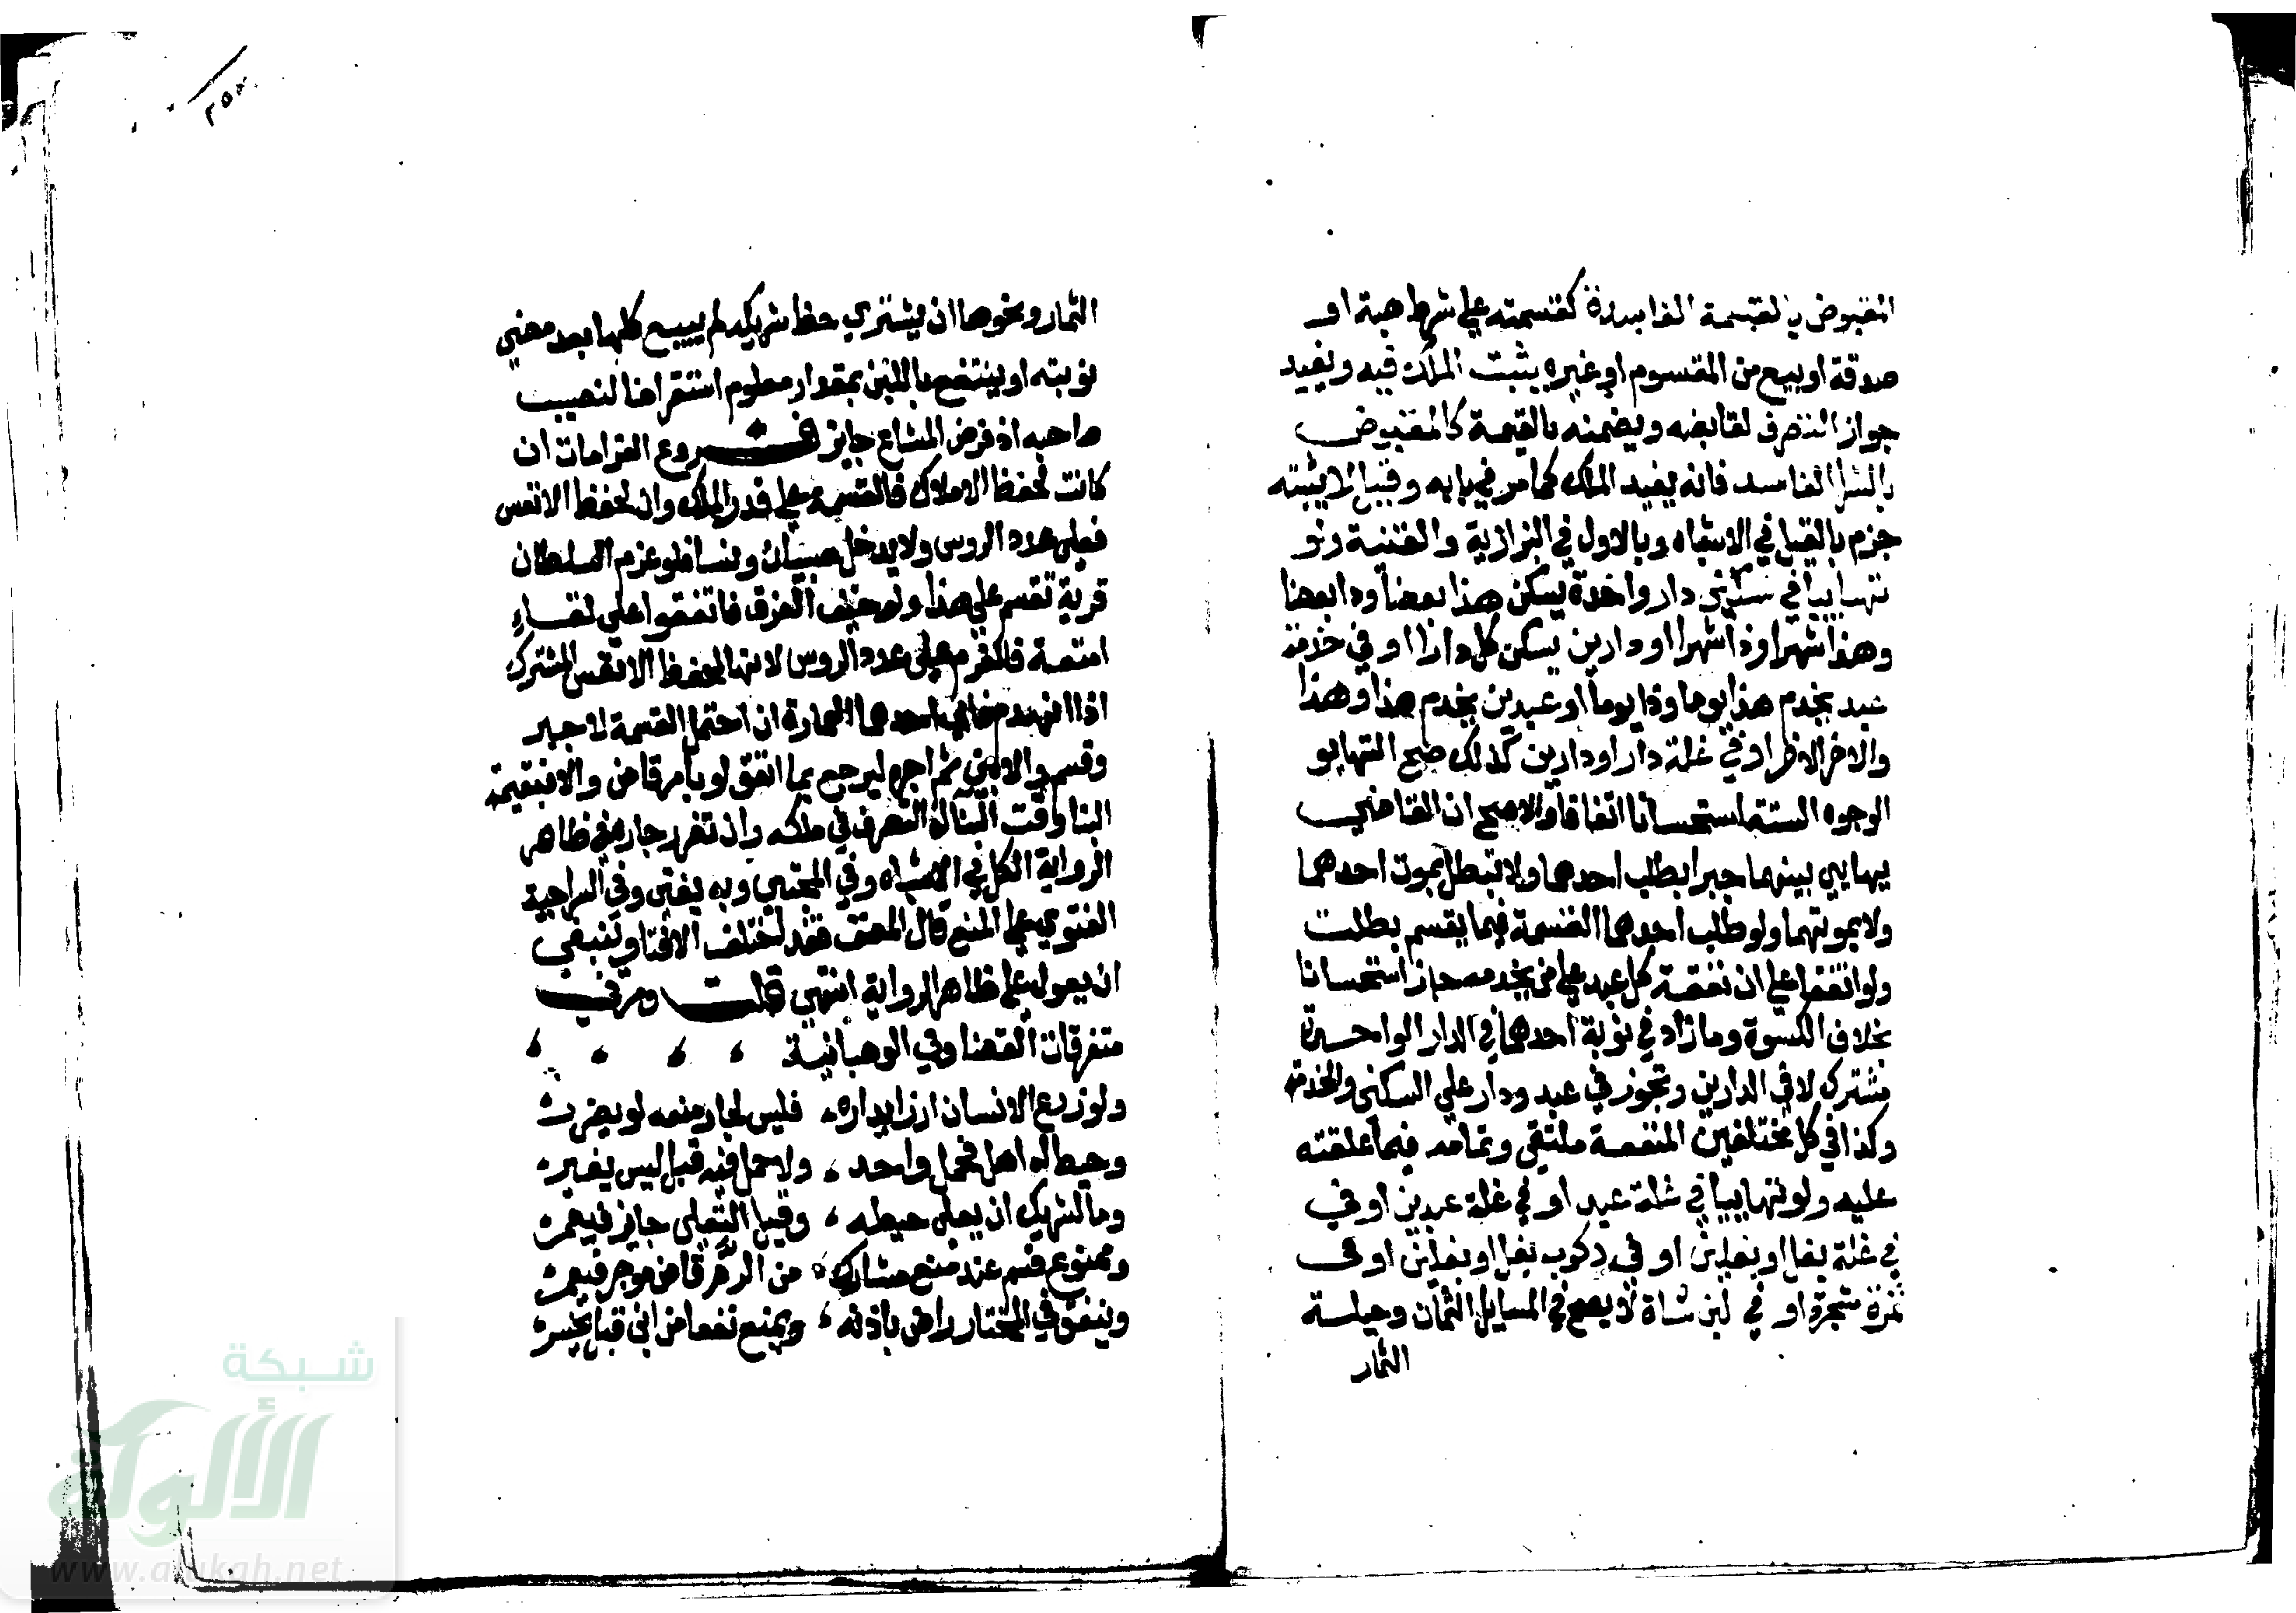 المقبوض بالقسمة الفاسدة كقسمته على شرط هبة او
صدقة او بيع من المقسوم او غيره يثبت الملك فيه ويفيد
جواز التصرف لقابضه ويضمنه بالقيمة كالمقبوض
بالشرا الفاسد فانه يفيد الملك كما مر في بابه وقيل لا يثبته
جزم بالقيل في الاشباه وبالاول في البزازية والقنية ولو
تهاييا في سكنى دار واحدة يسكن هذا بعضا وذا بعضا
وهذا شهرا وذا شهرا او دارين يسكن كل دارا او في خدمة
عبد يخدم هذا يوما وذا يوما او عبدين يخدم هذا وهذا
والاخر الاخر او في غلة دار او دارين كذلك صح التهايو
الوجوه الستة استحسانا اتفاقا والاصح ان القاضي
يهايي بينهما جبرا بطلب احدهما ولا تبطل بموت احدهما
ولا بموتهما ولو طلب احدهما القسمة فيما يقسم بطلت
ولو اتفقا على ان نفقة كل عبد على من يخدمه جاز استحسانا
بخلاف الكسوة وما زاد في نوبة احدهما في الدار الواحدة
مشترك لا في الدارين وتجوز في عبد ودار على السكنى والخدمة
وكذا في كل مختلفين المنفعة ملتقى وتمامه فيما علقته
عليه ولو تهاييا في غلة عبد او في غلة عبدين او في
في غلة بغل او بغلين او في ركوب بغل او بغلين او في
ثمرة شجرة او في لبن شاة لا يصح في المسايل الثمان وحيلة
الثمار
الثمار ونحوها ان يشتري حظ شريكه ثم يبيع كلها بعد مضي
نوبته او ينتفع باللبن بمقدار معلوم استقراضا لنصيب
صاحبه اذ قرض المشاع جايز فروع الغرامات ان
كانت لحفظ الاملاك فالقسمة على قدر الملك وان لحفظ الانفس
فعلى عدد الروس ولا يدخل صبيان ونسا فلو غرم السلطان
قرية تقسم على هذا ولو خيف الغرق فاتفقوا على القاء
امتعة فالغرم على عدد الروس لانها لحفظ الانفس المشترك
اذا انهدم فابى احدهما العمارة ان احتمل القسمة لا جبر
وقسم والا بنى ثم اجره ليرجع بما انفق لو بامر قاض والا فبقيمة
البنا وقت البنا له التصرف في ملكه وان تضرر جاره في ظاهر
الرواية الكل في الاشباه وفي المجتبى وبه يفتى وفي السراجية
الفتوى على المنع قال المصنف فقد اختلف الافتا وينبغي
ان يعول على ظاهر الرواية انتهى قلت ومر في
متفرقات القضا وفي الوهبانية
ولو زرع الانسان ارزا بداره فليس لجار منعه لو يضرر
وحيط له اهل فحمل واحد ولا حمل فيه قبل ليس يغير
وما لشريك ان يعلي حيطه وقيل التعلي جايز فيعمر
وممنوع قسم عند منع مشارك من الرم قاض موجر فيعمر
وينفق في المختار راض باذنه ويمنع نفعا من ابى قبل يخسر